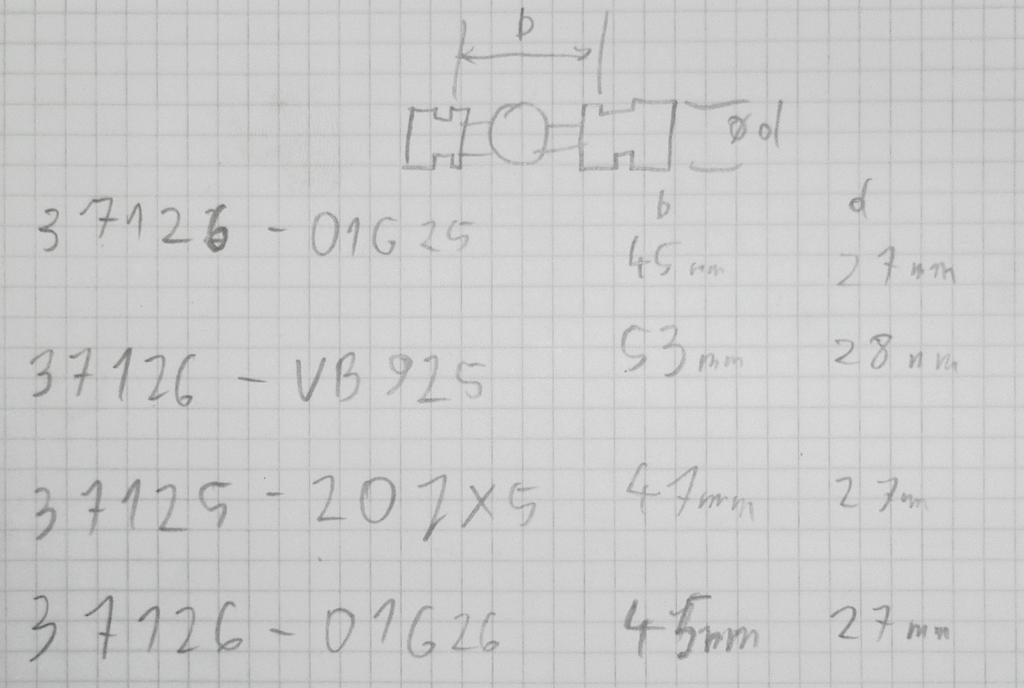 b
ø d
b d
37126 - 01G25 45mm 27mm
37126 - VB925 53mm 28mm
37125 - 20Z×5 47mm 27m
37126 - 01G26 45mm 27mm